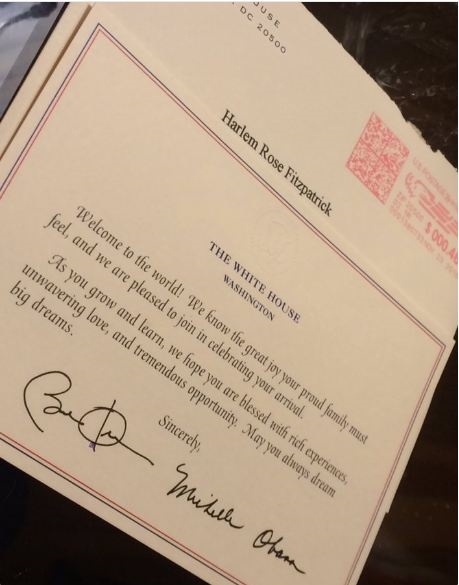 DC 20500
Harlem Rose Fitzpatrick
U.S. POSTAGE
$ 000.46
THE WHITE HOUSE
WASHINGTON
Welcome to the world! We know the great joy your proud family must
feel, and we are pleased to join in celebrating your arrival.
As you grow and learn, we hope you are blessed with rich experiences,
unwavering love, and tremendous opportunity. May you always dream
big dreams.
Sincerely,
Michelle Obama